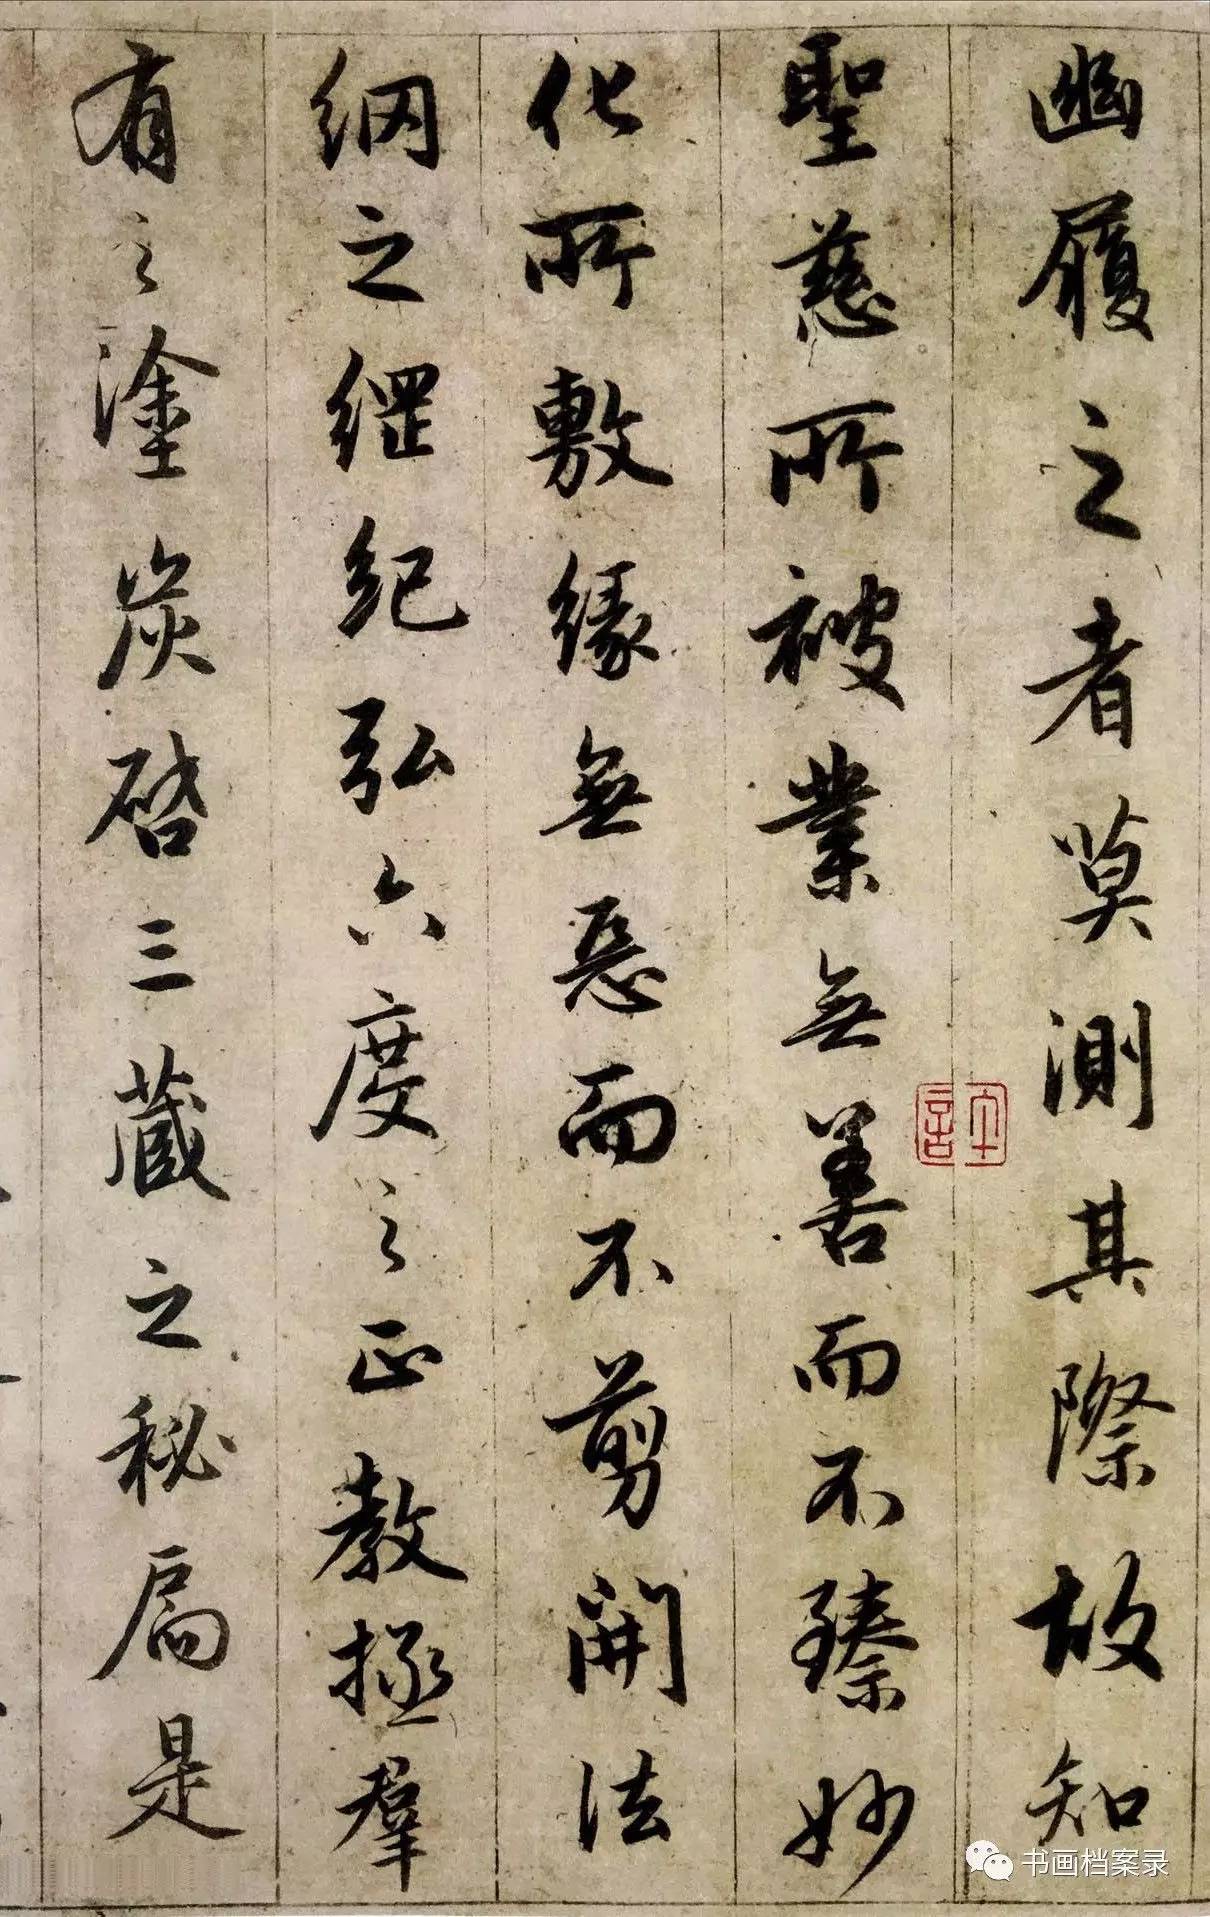 幽履之者莫測其際故知
聖慈所被業無善而不臻妙
化所敷緣無惡而不剪開法
網之綱紀弘六度之正教拯羣
有之塗炭啓三藏之秘扃是
书画档案录